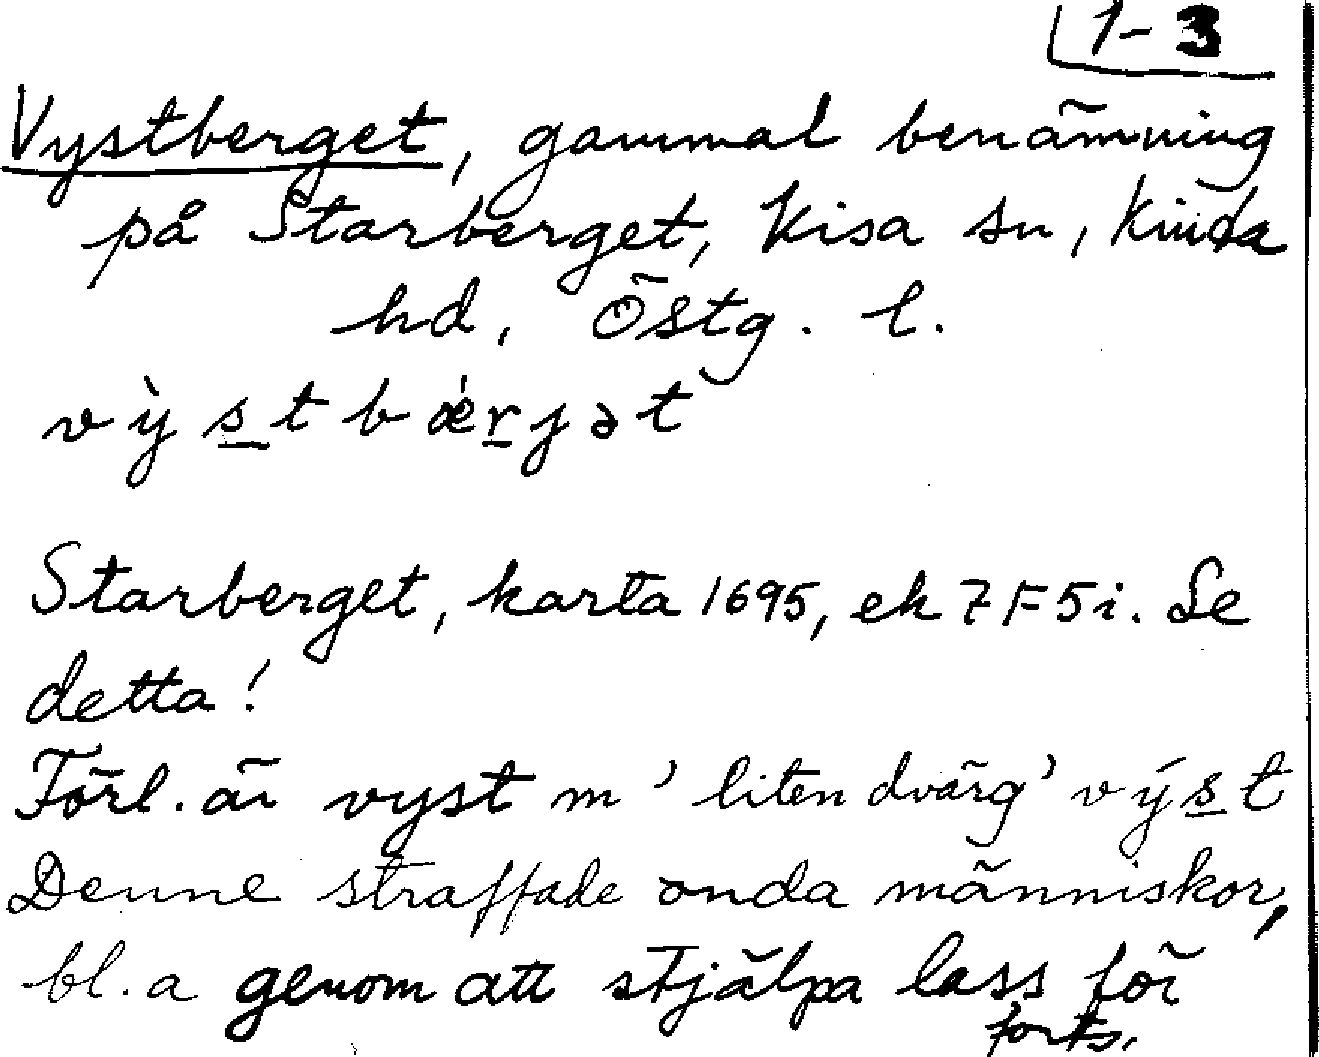 1-3
Vystberget, gammal benämning
på Starberget, Kisa sn, Kinda
hd, Östg. l.
vỳstbǽrjət
Starberget, karta 1695, ek 7F5i. Se
detta!
Förl. är vyst m 'liten dvärg' výst
Denne straffade onda människor,
bl.a genom att stjälpa lass för
forts.